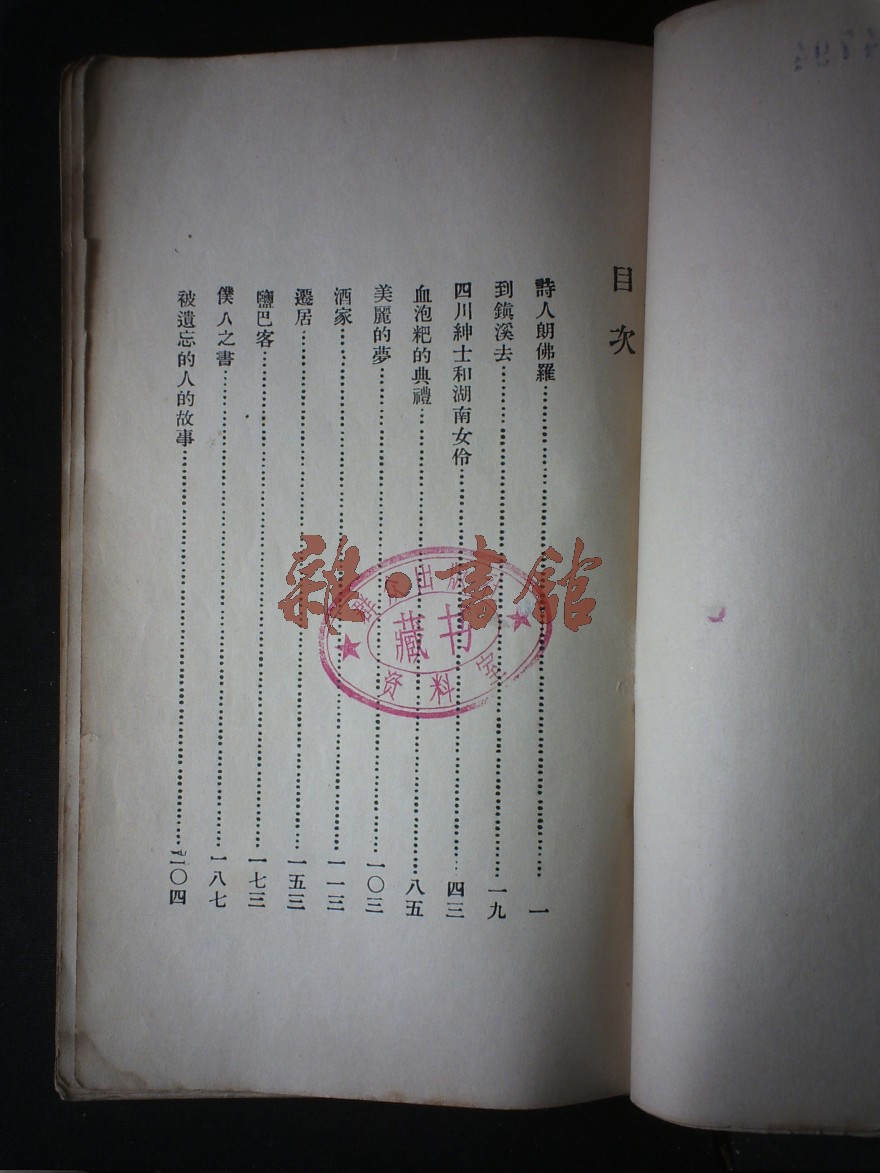 目次
詩人朗佛羅……一
到鎮溪去……一九
四川紳士和湖南女伶……四三
血泡粑的典禮……八五
美麗的夢……一〇三
酒家……一一三
遷居……一五三
鹽巴客……一七三
僕人之書……一八七
被遺忘的人的故事……二〇四
雜·書館
出版
藏书
资料室
4794